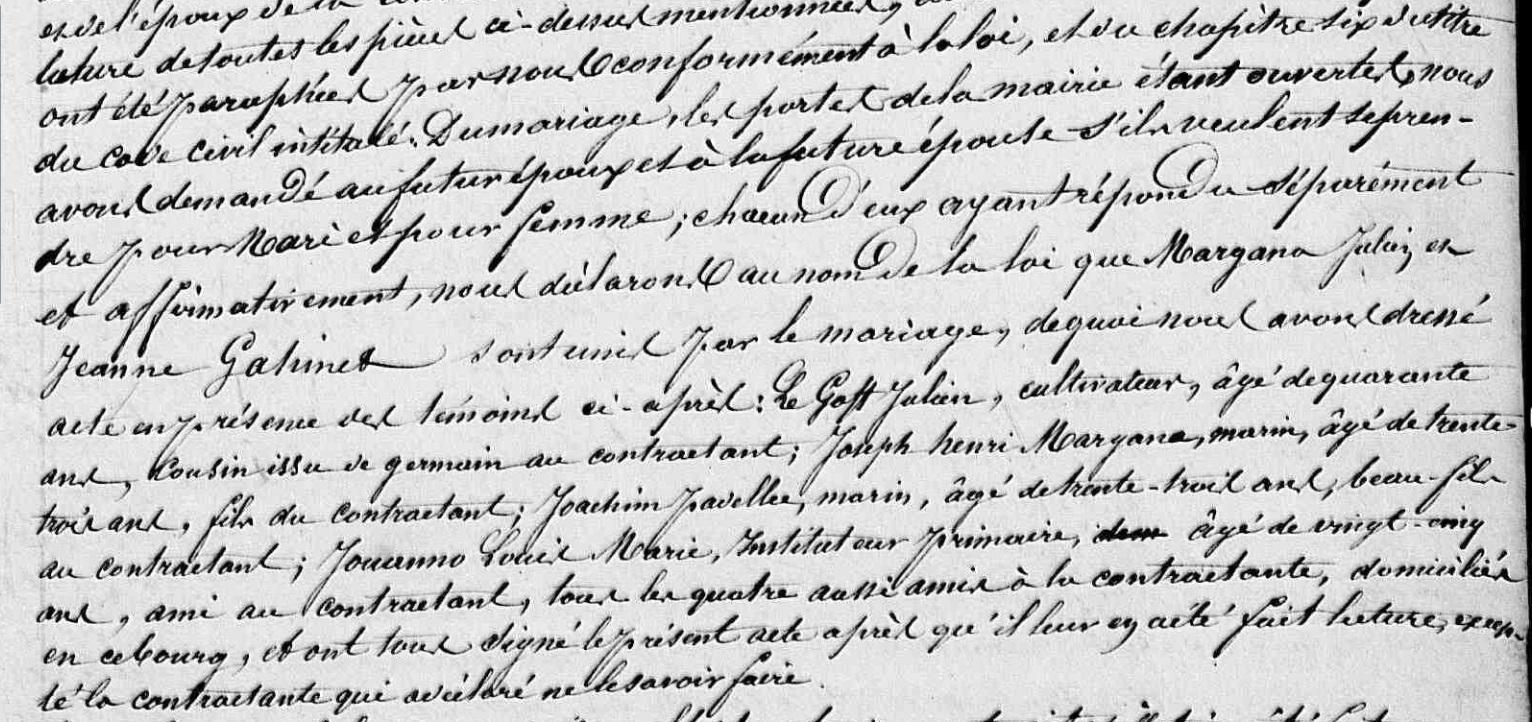 et de l'époux de la
lecture de toutes les pièces ci-dessus mentionnées,
ont été paraphées par nous conformément à la loi, et du chapitre six du titre
du code civil intitulé: Du mariage, les portes de la mairie étant ouvertes, nous
avons demandé au futur époux et à la future épouse s'ils veulent se pren-
dre pour Mari et pour femme; chacun d'eux ayant répondu séparément
et affirmativement, nous déclarons au nom de la loi que Margana Julien et
Jeanne Gahinet sont unis par le mariage, de quoi nous avons dressé
acte en présence des témoins ci-après: Le Goff Julien, cultivateur, âgé de quarante
ans, Cousin issu de germain au contractant; Joseph henri Margana, marin, âgé de trente-
trois ans, fils du contractant; Joachim Pavellec, marin, âgé de trente-trois ans, beau-fils
au contractant; Jouanno Louis Marie, Instituteur primaire, âgé de vingt-cinq
ans, ami au contractant, tous les quatre aussi amis à la contractante, domiciliés
en ce bourg, et ont tous signé le présent acte après qu'il leur en a été fait lecture, excep-
té la contractante qui a déclaré ne le savoir faire.